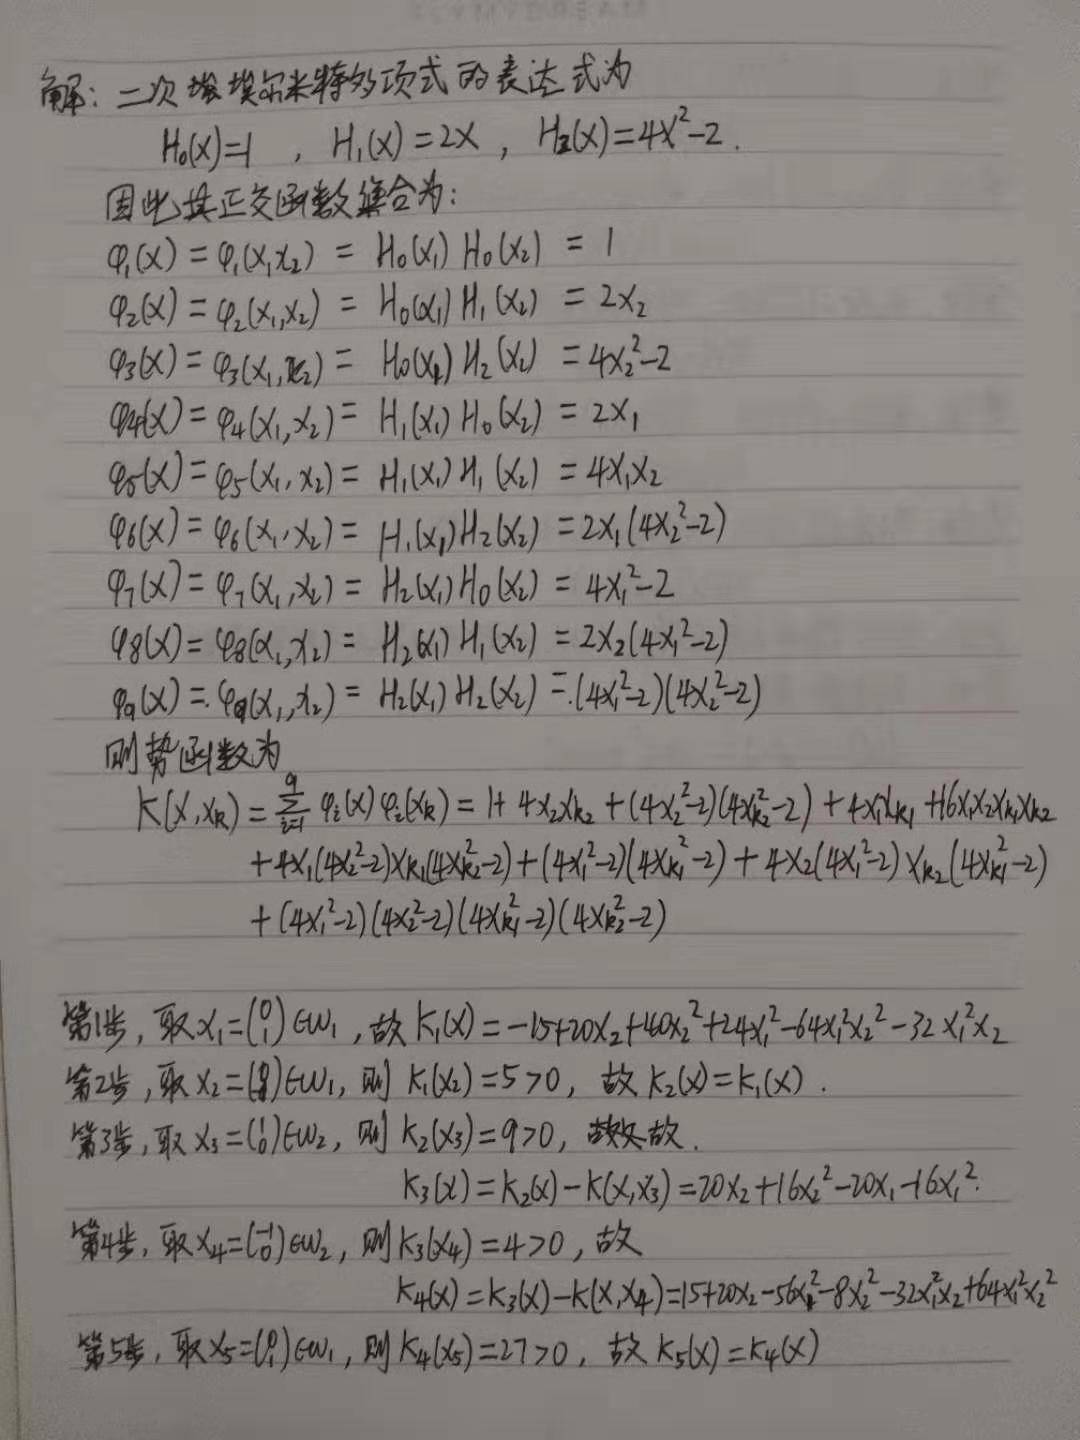 解：二次埃尔米特多项式的表达式为
H₀(X)=1 , H₁(X)=2X , H₂(X)=4X²-2 .
因此其正交函数集合为：
φ₁(X) = φ₁(X₁X₂) = H₀(X₁) H₀(X₂) = 1
φ₂(X) = φ₂(X₁,X₂) = H₀(X₁) H₁(X₂) = 2X₂
φ₃(X) = φ₃(X₁,X₂) = H₀(X₁) H₂(X₂) = 4X₂²-2
φ₄(X) = φ₄(X₁,X₂) = H₁(X₁) H₀(X₂) = 2X₁
φ₅(X) = φ₅(X₁,X₂) = H₁(X₁) H₁(X₂) = 4X₁X₂
φ₆(X) = φ₆(X₁,X₂) = H₁(X₁) H₂(X₂) = 2X₁(4X₂²-2)
φ₇(X) = φ₇(X₁,X₂) = H₂(X₁) H₀(X₂) = 4X₁²-2
φ₈(X) = φ₈(X₁,X₂) = H₂(X₁) H₁(X₂) = 2X₂(4X₁²-2)
φ₉(X) = φ₉(X₁,X₂) = H₂(X₁) H₂(X₂) = (4X₁²-2)(4X₂²-2)
则势函数为
K(X,Xₖ) = Σᵢ₌₁⁹ φᵢ(X)φᵢ(Xₖ) = 1+4X₂Xₖ₂+(4X₂²-2)(4Xₖ₂²-2)+4X₁Xₖ₁+16X₁X₂Xₖ₁Xₖ₂
+4X₁(4X₂²-2)Xₖ₁(4Xₖ₂²-2)+(4X₁²-2)(4Xₖ₁²-2)+4X₂(4X₁²-2)Xₖ₂(4Xₖ₁²-2)
+(4X₁²-2)(4X₂²-2)(4Xₖ₁²-2)(4Xₖ₂²-2)
第1步，取X₁=(0 1)∈W₁，故K₁(X)=-15+20X₂+40X₂²+24X₁²-64X₁²X₂²-32X₁²X₂
第2步，取X₂=( )∈W₁，则K₁(X₂)=5>0，故K₂(X)=K₁(X).
第3步，取X₃=(1 0)∈W₂，则K₂(X₃)=9>0，故.
K₃(X)=K₂(X)-K(X,X₃)=20X₂+16X₂²-20X₁-16X₁².
第4步，取X₄=(-1 0)∈W₂，则K₃(X₄)=4>0，故
K₄(X)=K₃(X)-K(X,X₄)=15+20X₂-56X₁²-8X₂²-32X₁²X₂+64X₁²X₂²
第5步，取X₅=(0 1)∈W₁，则K₄(X₅)=27>0，故K₅(X)=K₄(X)